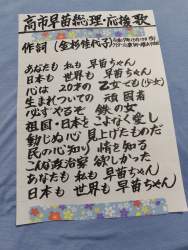 高市早苗総理・応援歌
作詞(金杉佳代子)
あなたも 私も 早苗ちゃん
日本も 世界も 早苗ちゃん
心は 20才の 乙女でも(少女)
生まれついての 頑固者
必ずやるぞ 鉄の女
祖国・日本をこよなく愛し
動じぬ心 見上げたものだ
民の心知り 情を知る
こんな政治家 欲しかった
あなたも 私も 早苗ちゃん
日本も 世界も 早苗ちゃん